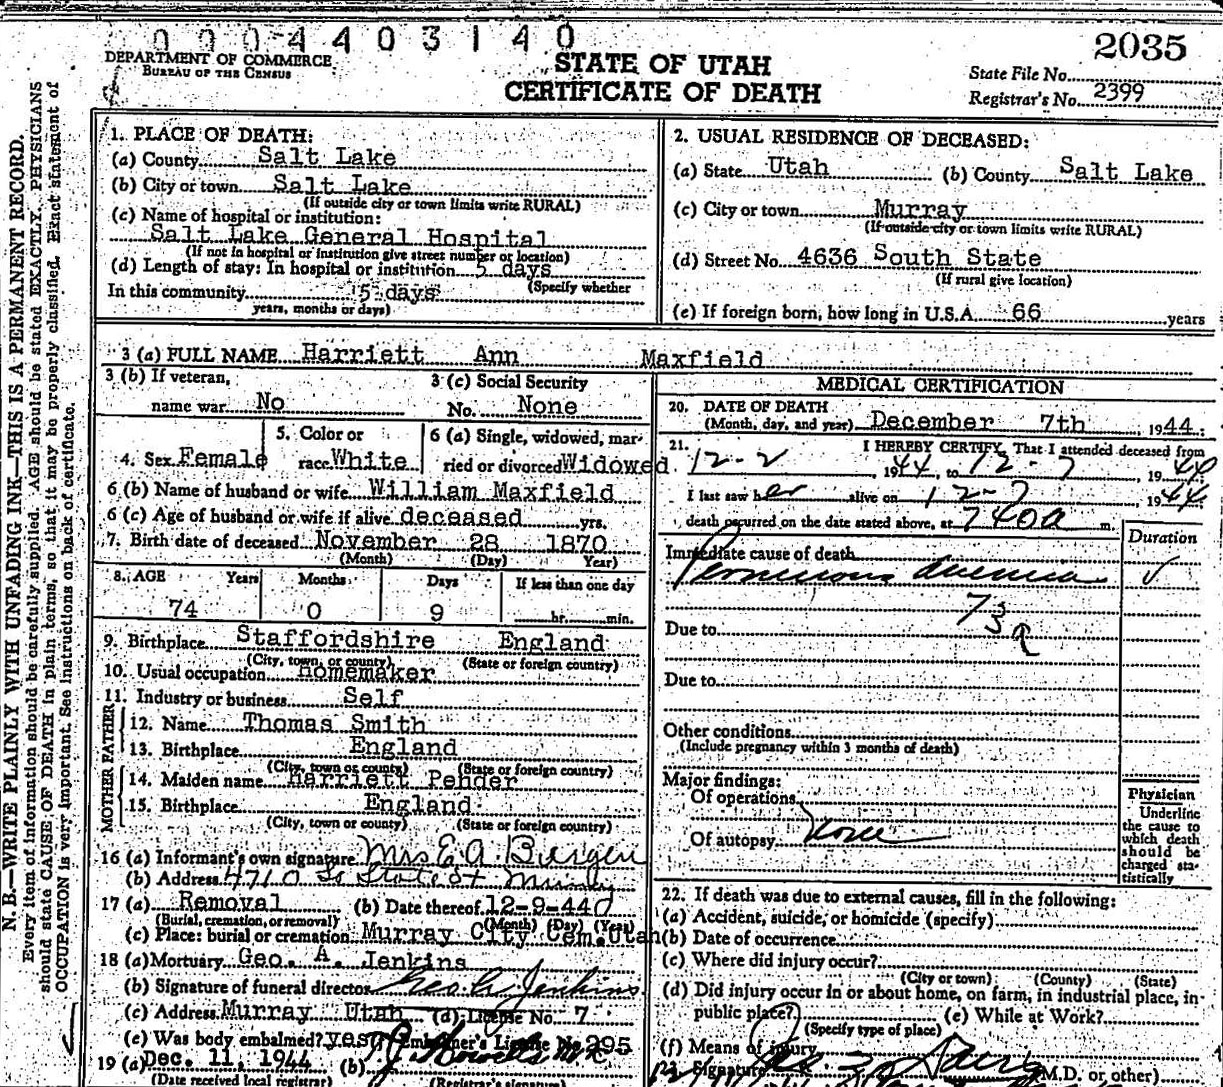 0 0 0 4 4 0 3 1 4 0
2035
DEPARTMENT OF COMMERCE
BUREAU OF THE CENSUS
STATE OF UTAH
CERTIFICATE OF DEATH
State File No.
Registrar's No. 2399
N. B.—WRITE PLAINLY WTH UNFADING INK—THIS IS A PERMANENT RECORD.
Every item of information should be carefully supplied. AGE should be stated EXACTLY. PHYSICIANS
should state CAUSE OF DEATH in plain terms, so that it may be properly classified. Exact statement of
OCCUPATION is very important. See instructions on back of certificate.
1. PLACE OF DEATH:
(a) County Salt Lake
(b) City or town Salt Lake
(If outside city or town limits write RURAL)
(c) Name of hospital or institution:
Salt Lake General Hospital
(If not in hospital or institution give street number or location)
(d) Length of stay: In hospital or institution 5 days
(Specify whether
In this community 5 days
years, months or days)
2. USUAL RESIDENCE OF DECEASED:
(a) State Utah (b) County Salt Lake
(c) City or town Murray
(If outside city or town limits write RURAL)
(d) Street No. 4636 South State
(If rural give location)
(e) If foreign born, how long in U.S.A. 66 years
3 (a) FULL NAME Harriett Ann Maxfield
3 (b) If veteran,
name war No
3 (c) Social Security
No. None
4. Sex Female
5. Color or
race White
6 (a) Single, widowed, mar-
ried or divorced Widowed
6 (b) Name of husband or wife William Maxfield
6 (c) Age of husband or wife if alive deceased yrs.
7. Birth date of deceased November 28 1870
(Month) (Day) Year)
8. AGE Years Months Days If less than one day
74 0 9 hr. min.
9. Birthplace Staffordshire England
(City, town, or county) (State or foreign country)
10. Usual occupation Homemaker
11. Industry or business Self
FATHER
12. Name Thomas Smith
13. Birthplace England
(City, town or county) (State or foreign country)
MOTHER
14. Maiden name Harriett Pender
15. Birthplace England
(City, town or county) (State or foreign country)
16 (a) Informant's own signature Mrs E A Burgen
(b) Address 4710 So State St Murray
17 (a) Removal (b) Date thereof 12-9-44
(Burial, cremation, or removal) (Month) (Day) (Year)
(c) Place: burial or cremation Murray City Cem. Utah
18 (a) Mortuary Geo. A. Jenkins
(b) Signature of funeral director Geo A Jenkins
(c) Address Murray Utah (d) License No. 7
(e) Was body embalmed? yes Embalmer's License No. 295
19 (a) Dec. 11, 1944 (b)
(Date received local registrar) (Registrar's signature)
MEDICAL CERTIFICATION
20. DATE OF DEATH
(Month, day, and year) December 7th 1944
21. I HEREBY CERTIFY, That I attended deceased from
12-2 1944, to 12-7, 1944
I last saw her alive on 12-7 1944
death occurred on the date stated above, at 740a m.
Duration
Immediate cause of death
Pernicious Anemia
73a
Due to
Due to
Other conditions
(Include pregnancy within 3 months of death)
Major findings:
Of operations
Of autopsy None
Physician
Underline
the cause to
which death
should be
charged sta-
tistically
22. If death was due to external causes, fill in the following:
(a) Accident, suicide, or homicide (specify)
(b) Date of occurrence
(c) Where did injury occur?
(City or town) (County) (State)
(d) Did injury occur in or about home, on farm, in industrial place, in-
public place? (e) While at Work?
(Specify type of place)
(f) Means of injury
Signature (M.D. or other)